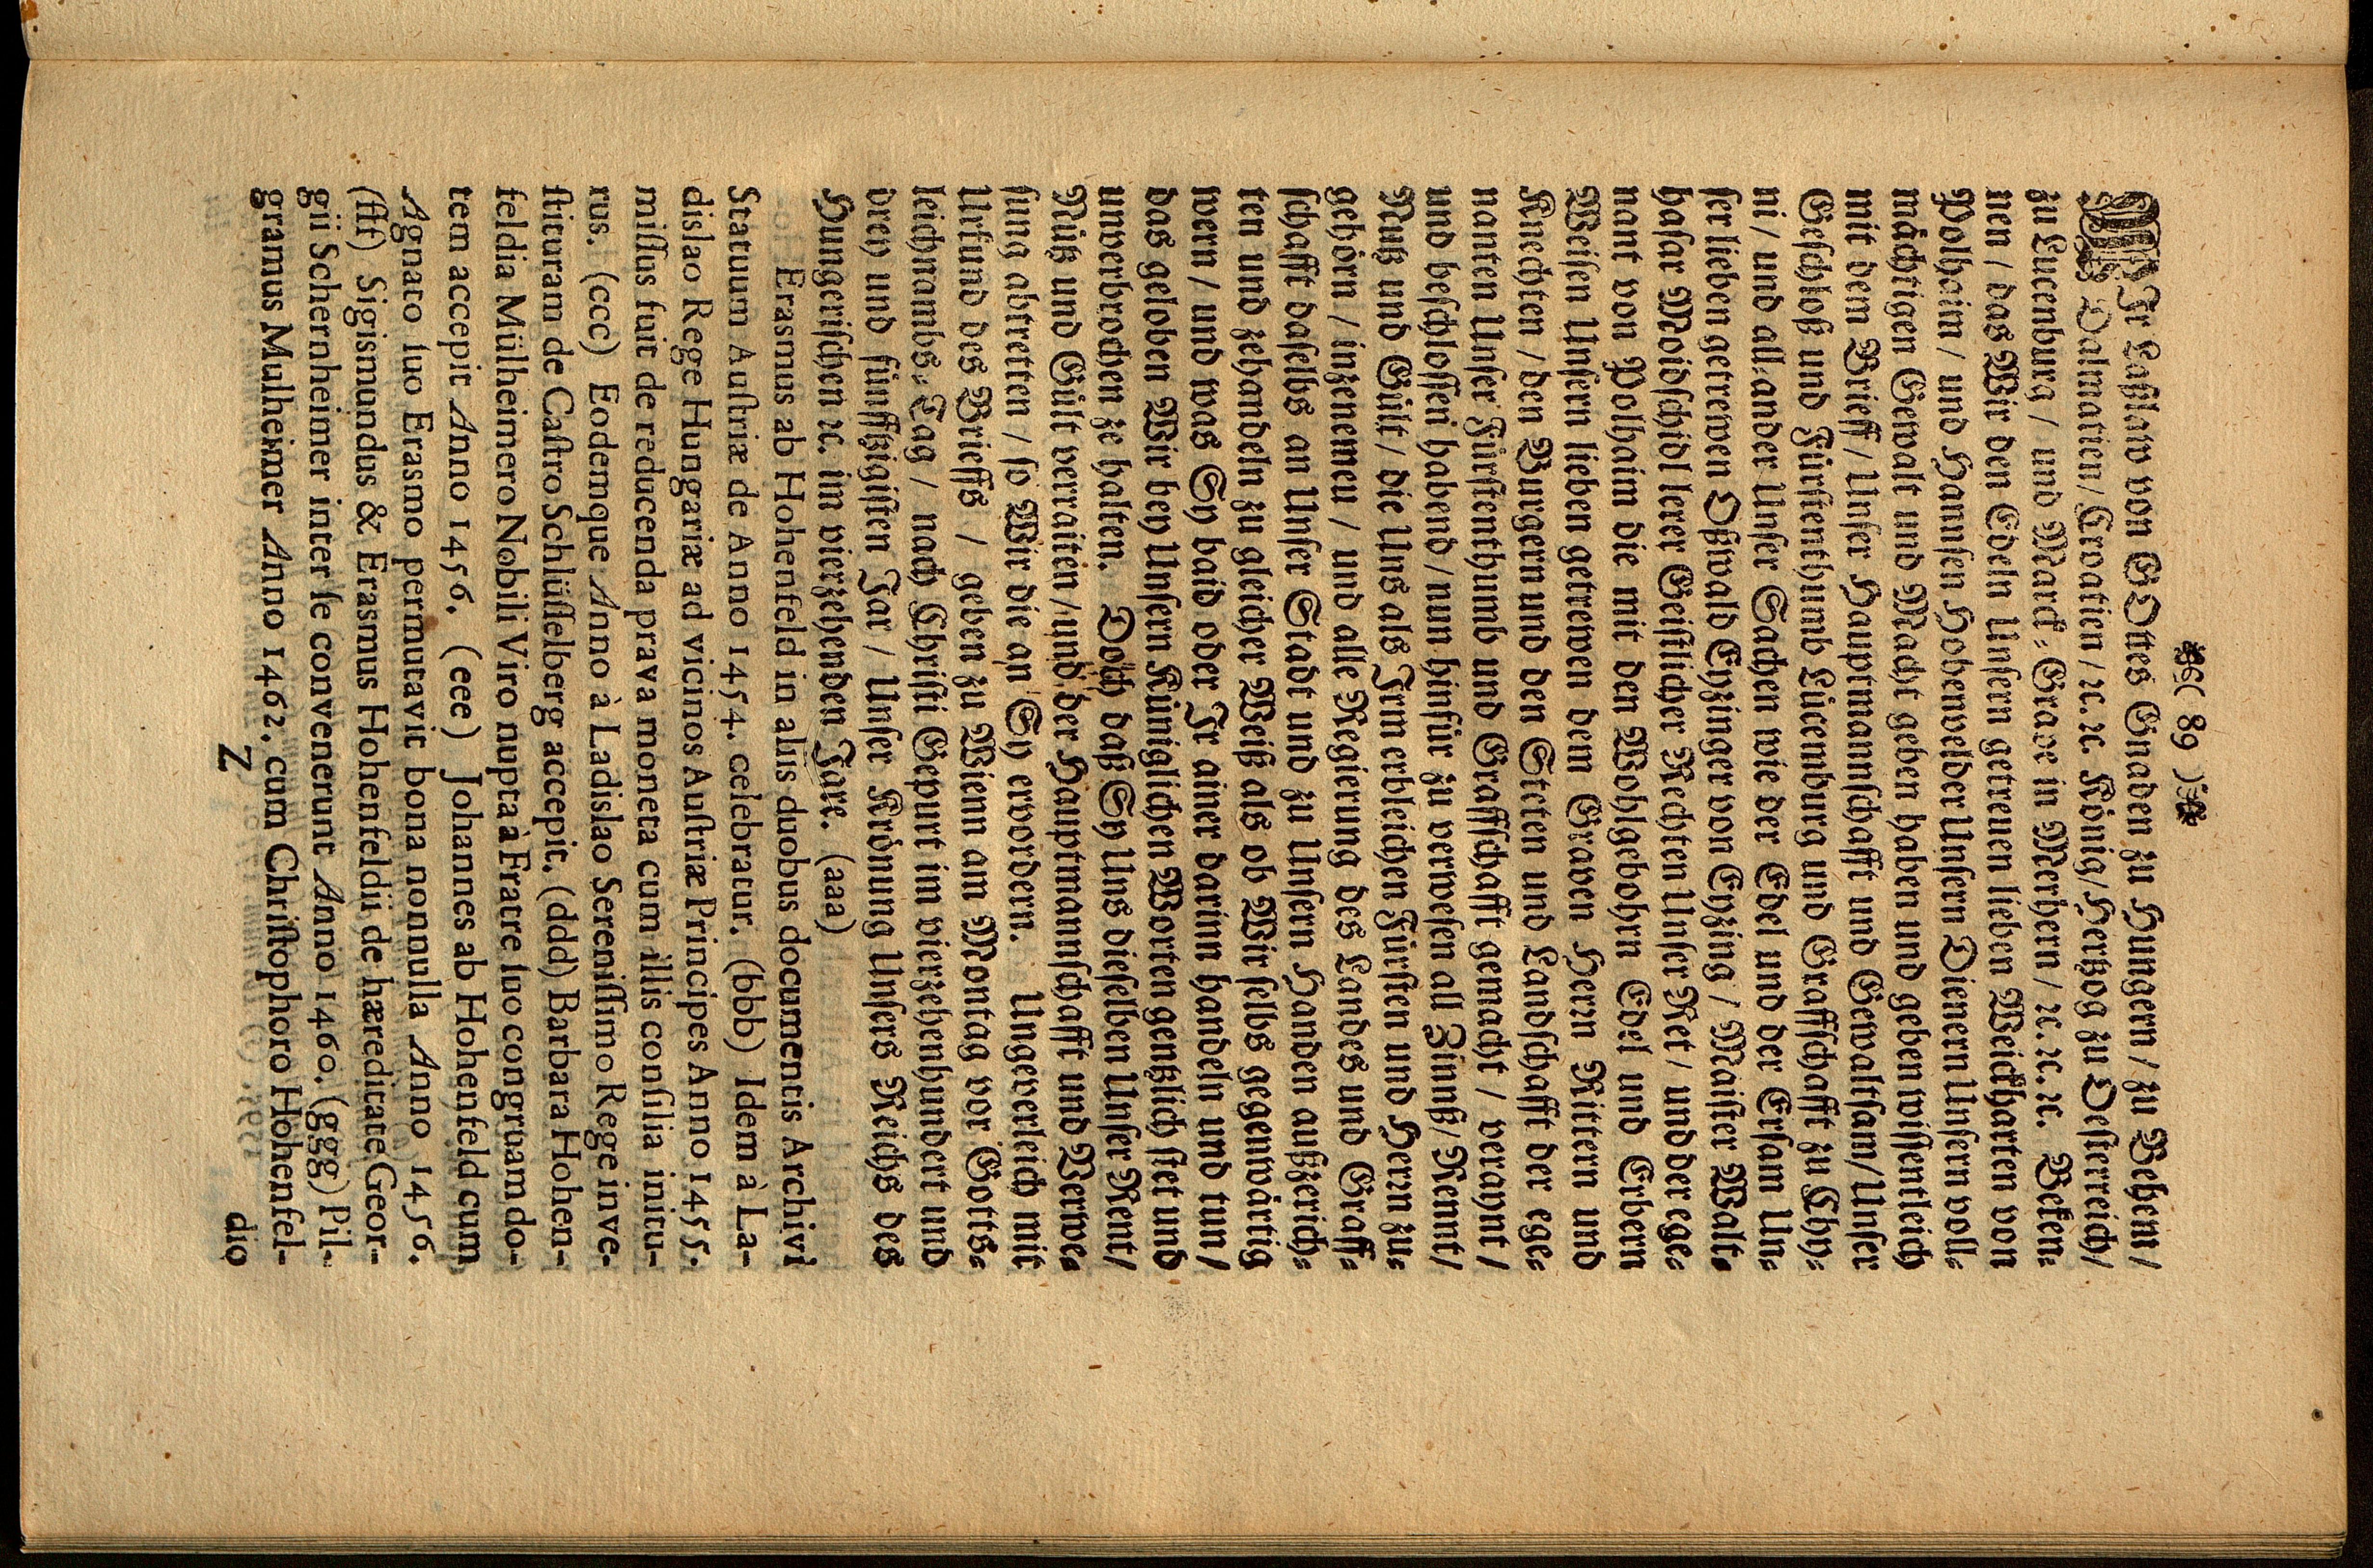 ( 89 )
WIr Laßlaw von GOttes Gnaden zu Hungern / zu Behem /
Dalmatien / Croatien / ꝛc. ꝛc. König / Hertzog zu Oesterreich /
zu Lucenburg / und Marck-Grave in Merhern / ꝛc. ꝛc. ꝛc. Beken-
nen / das Wir den Edeln Unsern getreuen lieben Weickharten von
Polhaim / und Hannsen Hohenvelder Unsern Dienern Unsern voll-
mächtigen Gewalt und Macht geben haben und geben wissentleich
mit dem Brieff / Unser Hauptmannschafft und Gewaltsam / Unser
Geschloß und Fürstenthumb Lücenburg und Graffschafft zu Chy-
ni / und all-ander Unser Sachen wie der Edel und der Ersam Un-
ser lieben getrewen Oßwald Eyzinger von Eyzing / Maister Walt-
hasar Moidschidl lerer Geistlicher Rechten Unser Ret / und der ege-
nant von Polhaim die mit den Wohlgebohrn Edel und Erbern
Weisen Unsern lieben getrewen dem Graven Herrn Rittern und
Knechten / den Burgern und den Steten und Landschafft der ege-
nanten Unser Fürstenthumb und Graffschafft gemacht / veraynt /
und beschlossen habend / nun hinfür zu verwesen all Zinnß / Rennt /
Nutz und Gült / die Uns als Irm erbleichen Fürsten und Herrn zu-
gehörn / inzenemen / und alle Regierung des Landes und Graff-
schafft daselbs an Unser Stadt und zu Unsern Handen außzerich-
ten und zehandeln zu gleicher Weiß als ob Wir selbs gegenwärtig
wern / und was Sy baid oder Ir ainer darinn handeln und tun /
das geloben Wir bey Unsern Küniglichen Worten gentzlich stet und
unverbrochen ze halten. Doch daß Sy Uns dieselben Unser Rent /
Nütz und Gült verraiten / und der Hauptmannschafft und Verwe-
sung abtretten / so Wir die an Sy ervordern. Ungeverleich mit
Urkund des Brieffs / geben zu Wienn am Montag vor Gotts-
leichnambs-Tag / nach Christi Gepurt im vierzehenhundert und
drey und fünffzigisten Jar / Unser Krönung Unsers Reichs des
Hungerischen ꝛc. im vierzehenden Jare. (aaa)
Erasmus ab Hohenfeld in aliis duobus documentis Archivi
Statuum Austriæ de Anno 1454. celebratur. (bbb) Idem à La-
dislao Rege Hungariæ ad vicinos Austriæ Principes Anno 1455.
missus fuit de reducenda prava moneta cum illis consilia initu-
rus. (ccc) Eodemque Anno à Ladislao Serenissimo Rege inve-
stituram de Castro Schlüsselberg accepit. (ddd) Barbara Hohen-
feldia Mülheimero Nobili Viro nupta à Fratre suo congruam do-
tem accepit Anno 1456. (eee) Johannes ab Hohenfeld cum
Agnato suo Erasmo permutavit bona nonnulla Anno 1456.
(fff) Sigismundus & Erasmus Hohenfeldii de hæreditate Geor-
gii Schernheimer inter se convenerunt Anno 1460. (ggg) Pil-
gramus Mulheimer Anno 1462. cum Christophoro Hohenfel-
Z
dio